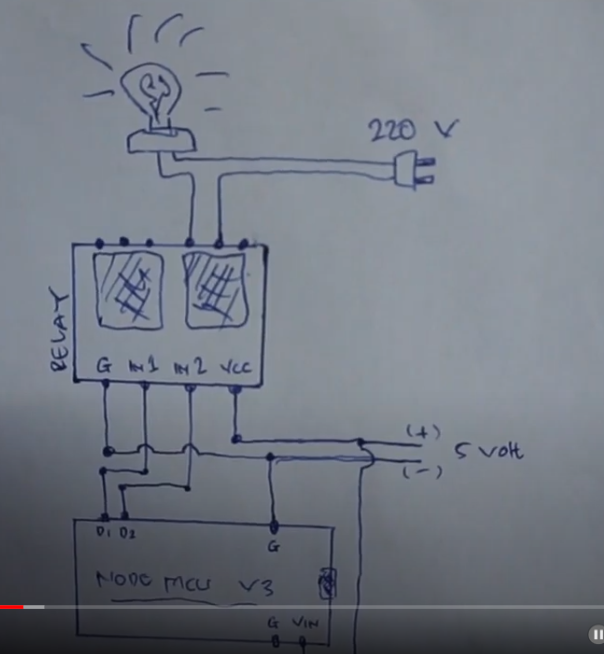 220 V
RELAY
G IN1 IN2 VCC
(+)
5 Volt
(-)
D1 D2
G
NODE MCU V3
G VIN